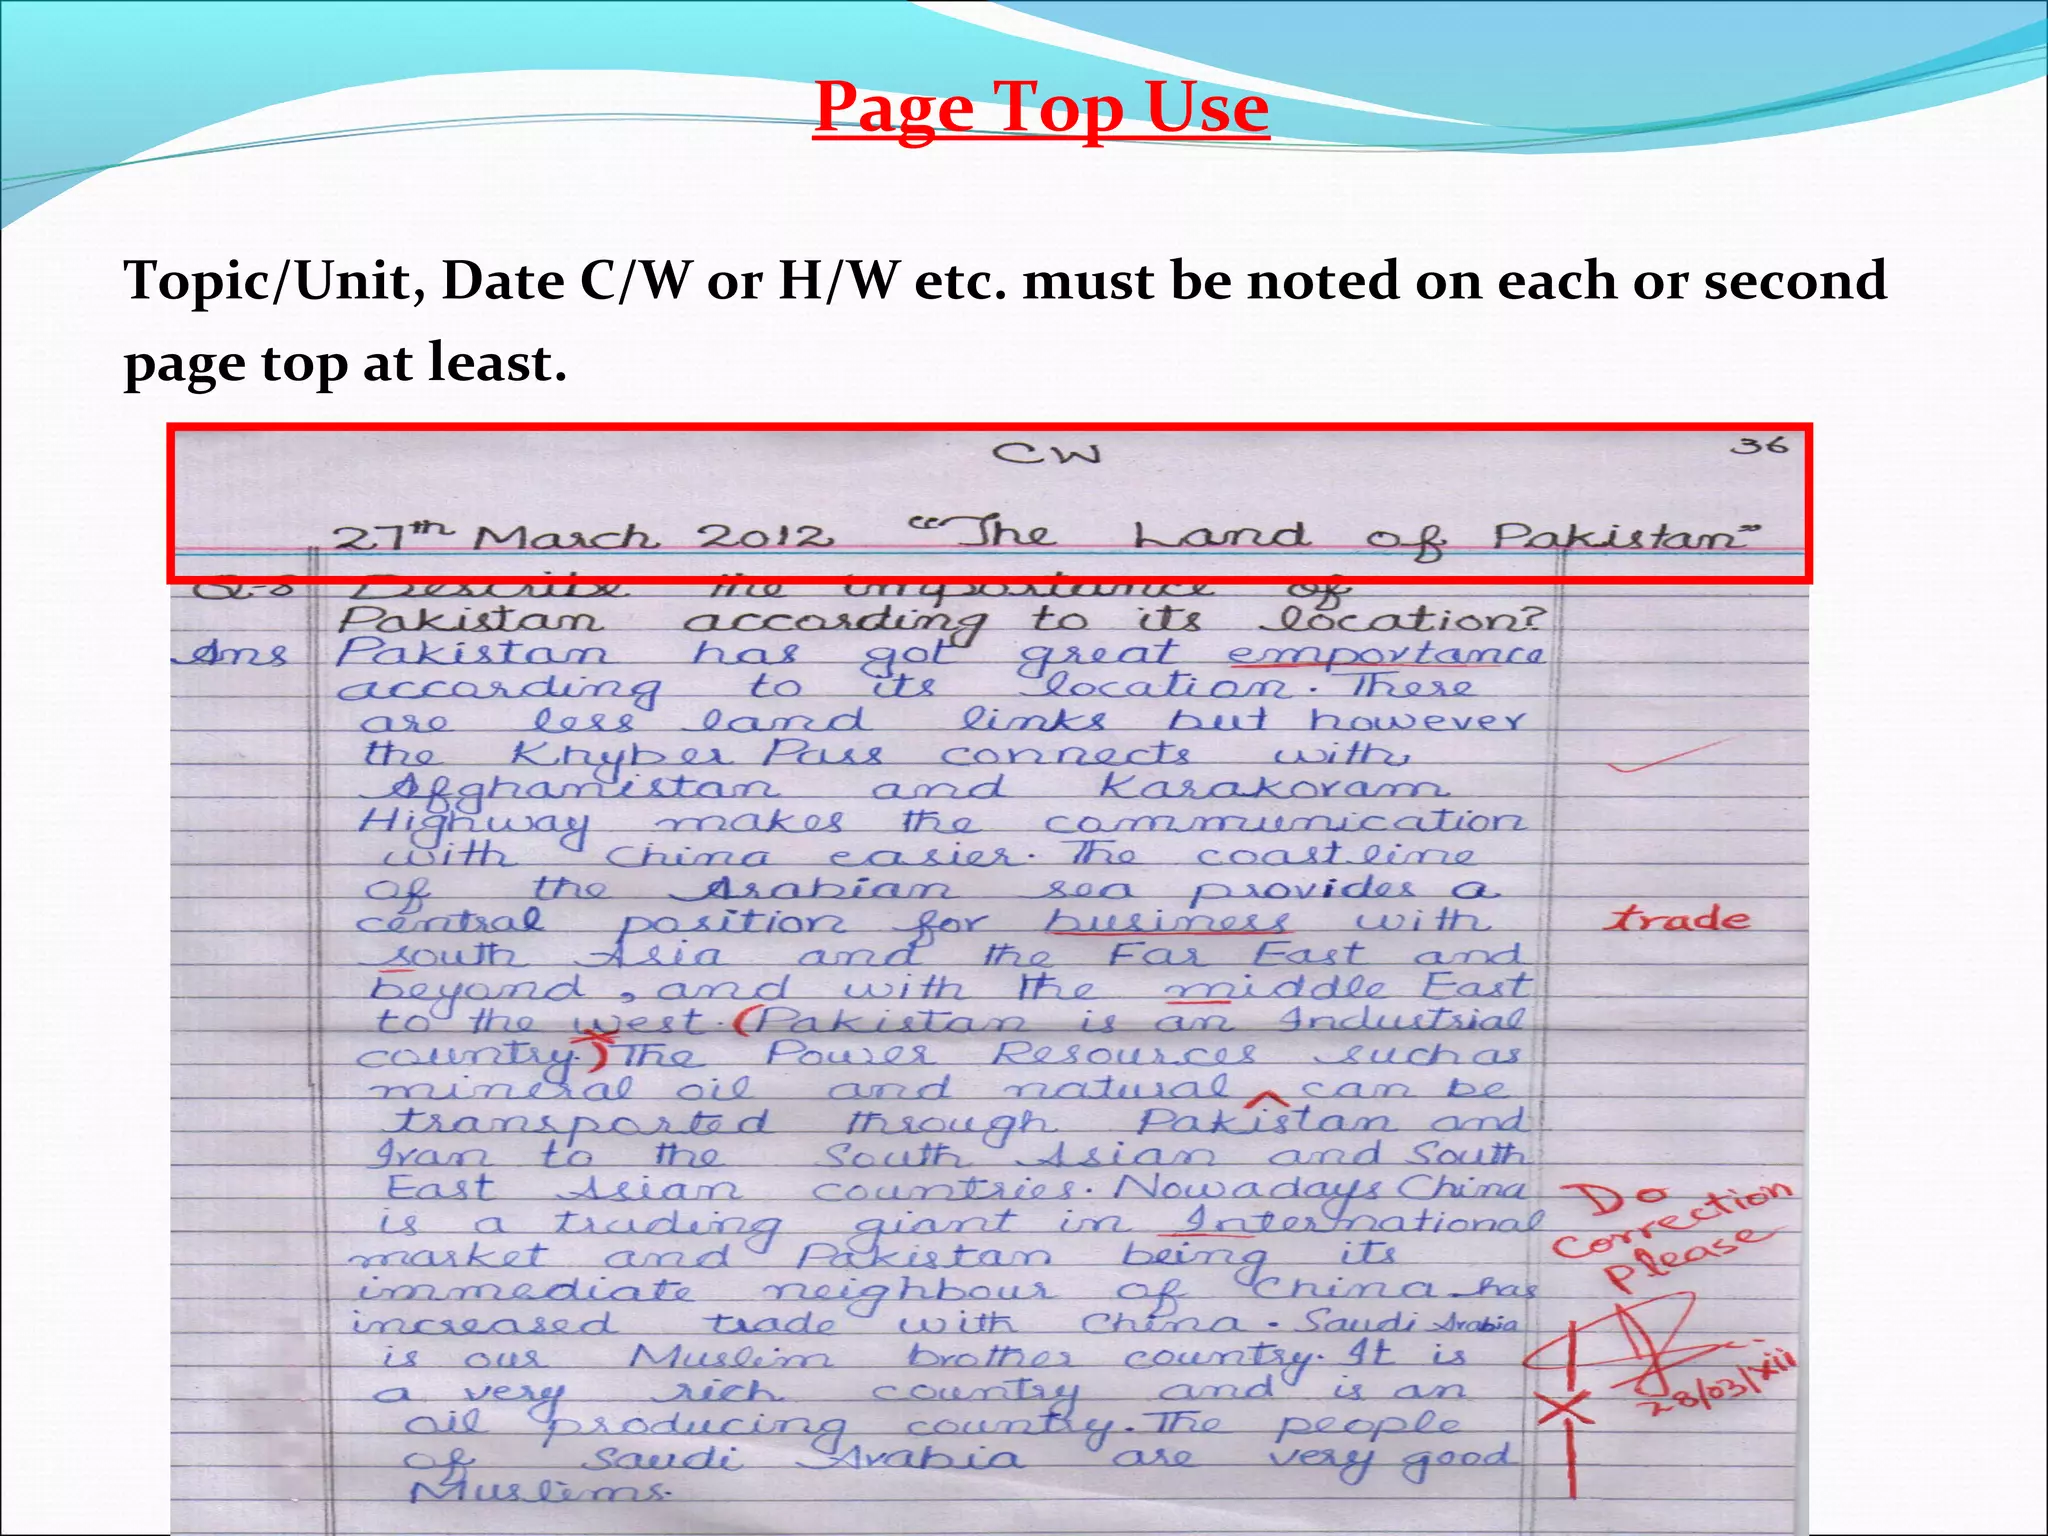 Page Top Use
Topic/Unit, Date C/W or H/W etc. must be noted on each or second
page top at least.
CW 36
27th March 2012 "The Land of Pakistan"
Q-8 Describe the importance of
Pakistan according to its location?
Ans Pakistan has got great emportance
according to its location. There
are less land links but however
the Khyber Pass connects with,
Afghanistan and Karakoram
Highway makes the communication
with China easier. The coastline
of the Arabian sea provides a
central position for business with trade
south Asia and the Far East and
beyond, and with the middle East
to the west. (Pakistan is an Industrial
country.) The Power Resources such as
mineral oil and natural ^ can be
transported through Pakistan and
Iran to the South Asian and South
East Asian countries. Nowadays China
is a trading giant in International
market and Pakistan being its
immediate neighbour of China has
increased trade with China. Saudi Arabia
is our Muslim brother country. It is
a very rich country and is an
oil producing country. The people
of Saudi Arabia are very good
Muslims.
Do
Correction
Please
28/03/xii